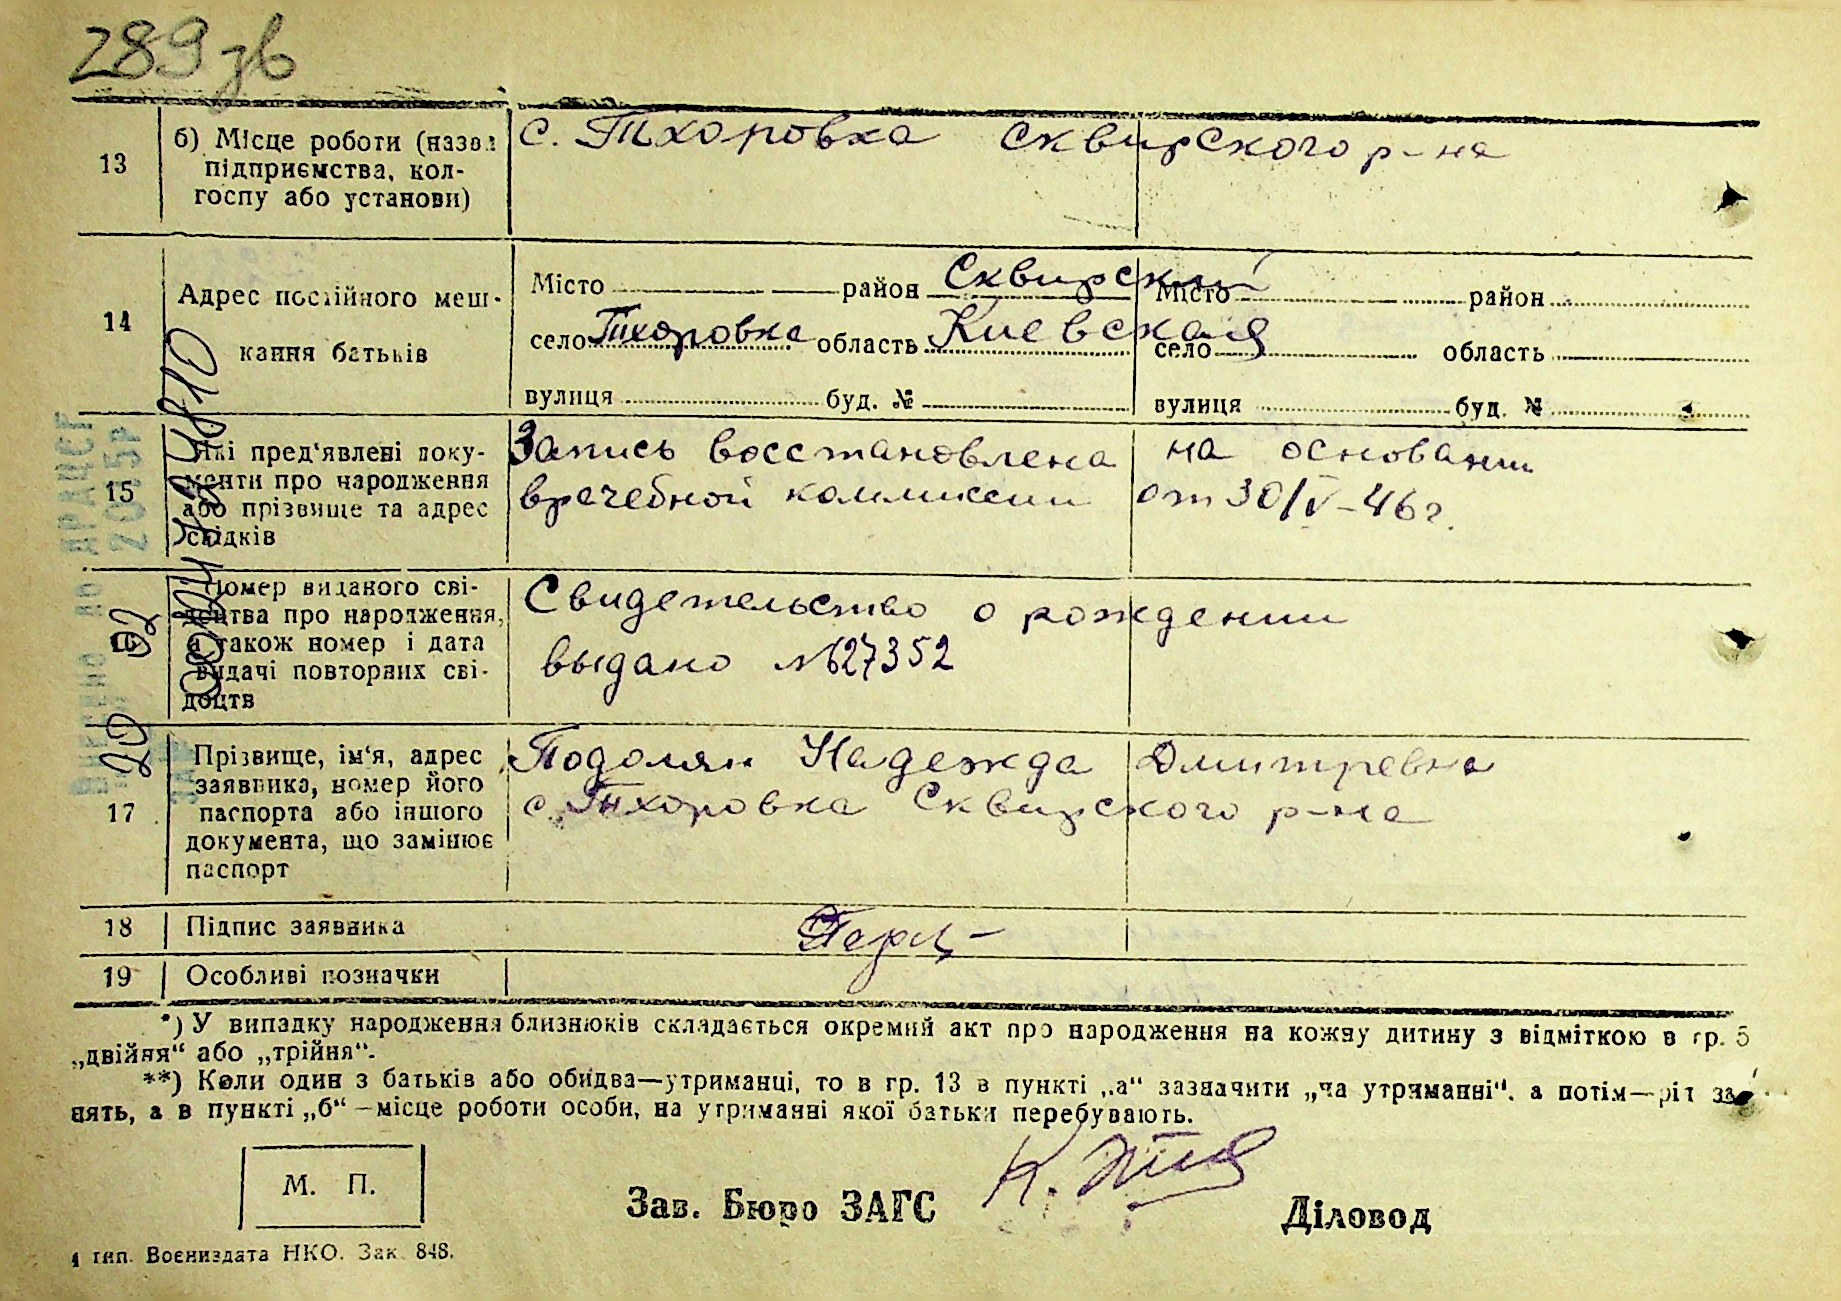 289 зв
13
б) Місце роботи (назва
підприємства, кол-
госпу або установи)
с. Тхоровка Сквирского р-на
14
Адрес постійного меш-
кання батьків
Місто район Сквирский
село Тхоровка область Киевская
вулиця буд. №
Місто район
село область
вулиця буд. №
15
Які пред'явлені доку-
менти про народження
або прізвище та адрес
свідків
Запись восстановлена на основании
врачебной коммиссии от 30/IV-46г.
16
Номер виданого сві-
доцтва про народження,
а також номер і дата
видачі повторних сві-
доцтв
Свидетельство о рождении
выдано №627352
17
Прізвище, ім'я, адрес
заявника, номер його
паспорта або іншого
документа, що замінює
паспорт
Подолян Надежда Дмитревна
с. Тхоровка Сквирского р-на
18
Підпис заявника
19
Особливі позначки
*) У випадку народження близнюків складається окремий акт про народження на кожну дитину з відміткою в гр. 5
„двійня“ або „трійня“.
**) Коли один з батьків або обидва—утриманці, то в гр. 13 в пункті „а“ зазначити „на утриманні“, а потім—рід за-
нять, а в пункті „б“ –місце роботи особи, на утриманні якої батьки перебувають.
М. П.
Зав. Бюро ЗАГС
Діловод
4 тип. Воениздата НКО. Зак. 848.